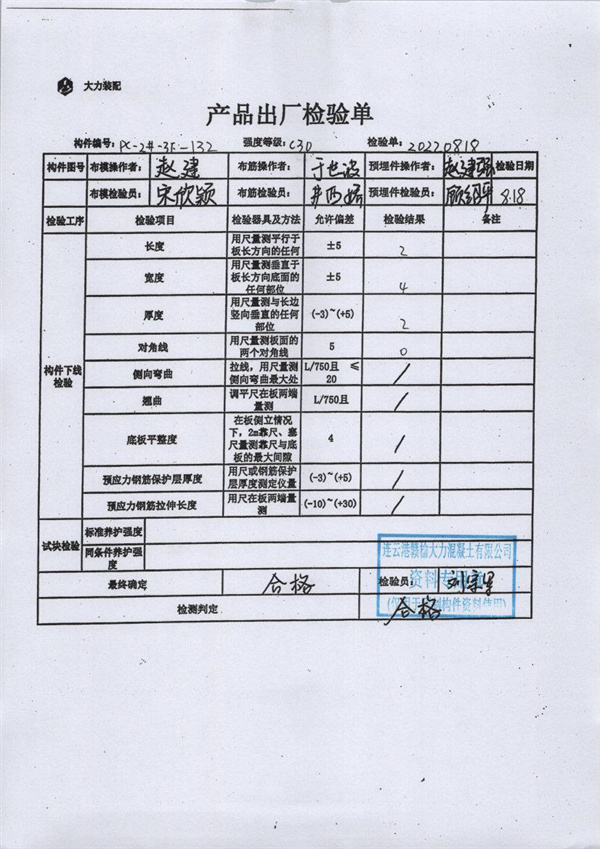 大力装配
产品出厂检验单
构件编号: PC-2#-3F-132 强度等级: C30 检验单: 20220818
构件图号 布模操作者: 赵建 布筋操作者: 于世波 预埋件操作者: 赵建强 检验日期
布模检验员: 宋欣颖 布筋检验员: 预埋件检验员: 8.18
检验工序 检验项目 检验器具及方法 允许偏差 检验结果 备注
构件下线检验
长度 用尺量测平行于板长方向的任何 ±5 2
宽度 用尺量测垂直于板长方向底面的任何部位 ±5 4
厚度 用尺量测与长边竖向垂直的任何部位 (-3)~(+5) 2
对角线 用尺量测板面的两个对角线 5 0
侧向弯曲 拉线,用尺量测侧向弯曲最大处 L/750且 ≤20 /
翘曲 调平尺在板两端量测 L/750且 /
底板平整度 在板侧立情况下,2m靠尺、塞尺量测靠尺与底板的最大间隙 4 /
预应力钢筋保护层厚度 用尺或钢筋保护层厚度测定仪量 (-3)~(+5) /
预应力钢筋拉伸长度 用尺在板两端量测 (-10)~(+30) /
试块检验 标准养护强度
同条件养护强度
连云港赣榆大力混凝土有限公司
资料专用章
最终确定 合格 检验员:
检测判定 合格